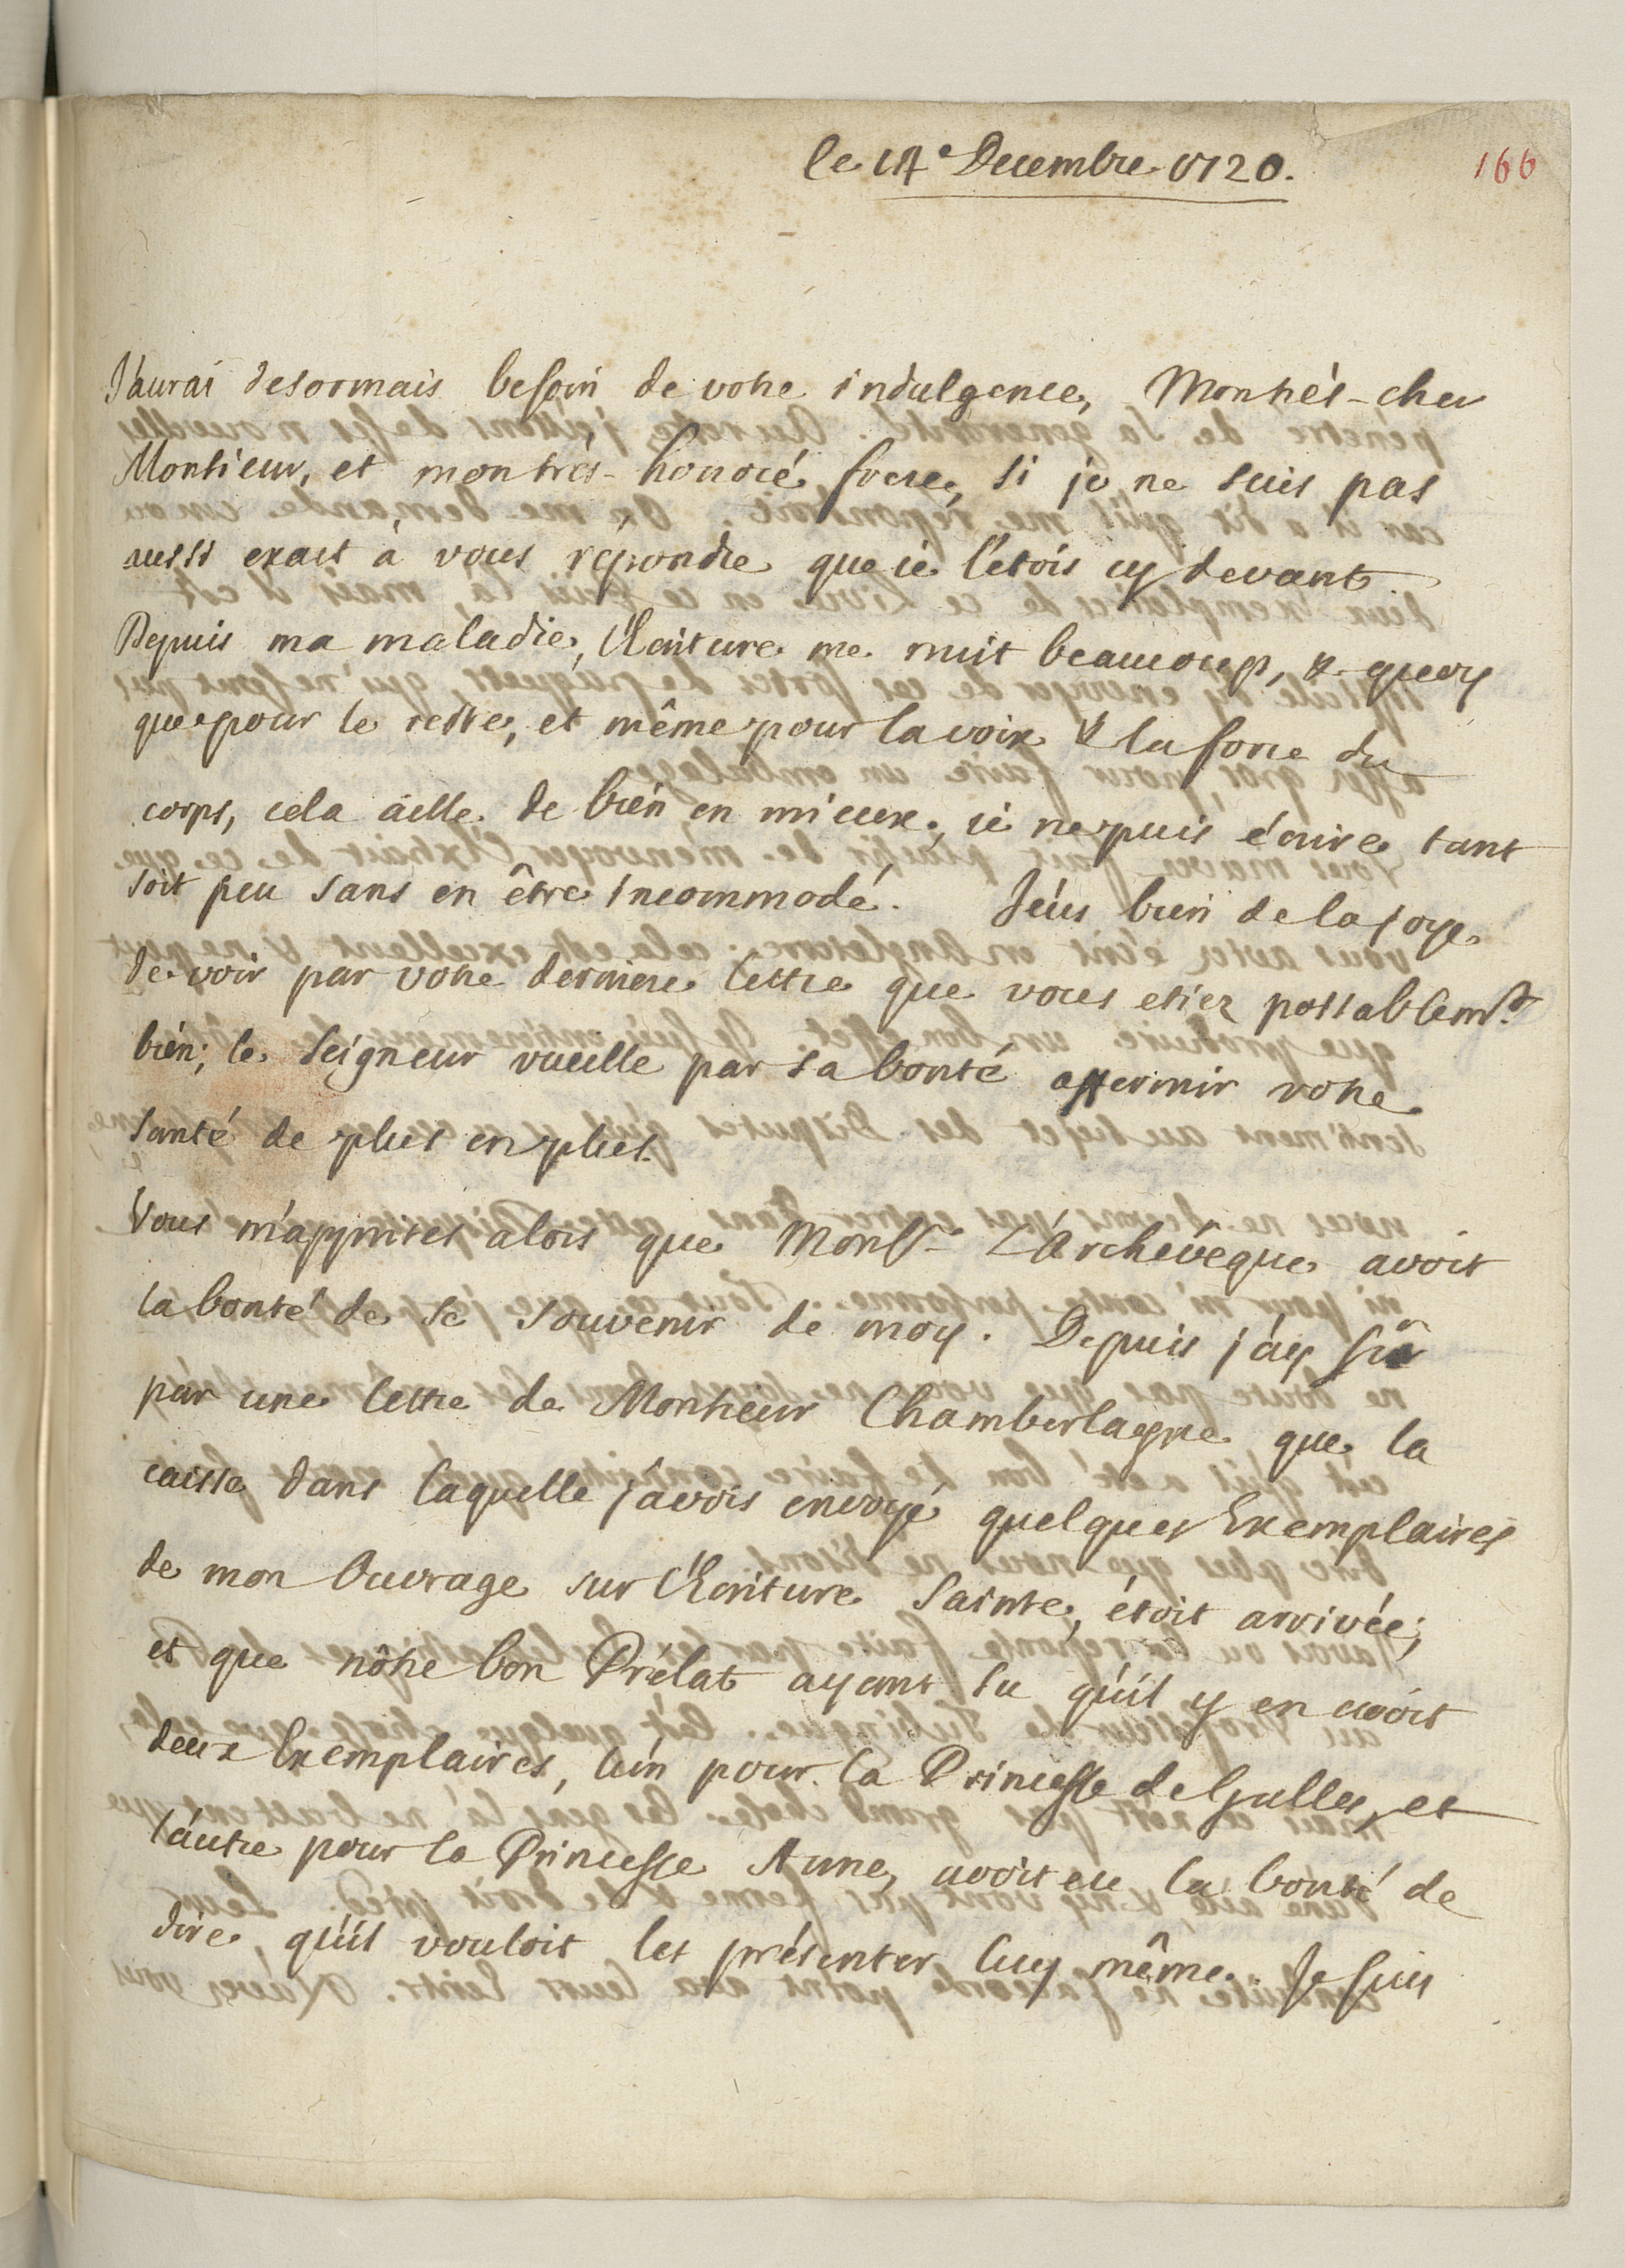 le 17e Decembre 1720.
166
J'aurai desormais besoin de votre indulgence, Mon très-cher
Monsieur, et mon très-honoré frere, si je ne suis pas
aussi exact à vous répondre que je l'étois cy devant
Depuis ma maladie, l'Ecriture me nuit beaucoup, & quoy
que pour le reste, et même pour la voix & la force du
corps, cela aille de bien en mieux, je ne puis écrire tant
soit peu sans en être incommodé. J'eus bien de la joye
de voir par votre derniere lettre que vous etiez passablemt.
bien; le Seigneur vueille par sa bonté affermir votre
santé de plus en plus.
Vous m'apprites alors que Monsr. L'Archevêque avoit
la bonté de se souvenir de moy. Depuis j'ay sû
par une lettre de Monsieur Chamberlayne que la
caisse dans laquelle j'avois envoyé quelques Exemplaires
de mon Ouvrage sur l'Ecriture Sainte, étoit arrivée;
et que nôtre bon Prélat ayant su qu'il y en avoit
deux Exemplaires, l'un pour la Princesse de Galles, et
l'autre pour la Princesse Anne, avoit eu la bonté de
dire, qu'il vouloit les présenter luy même. Je suis